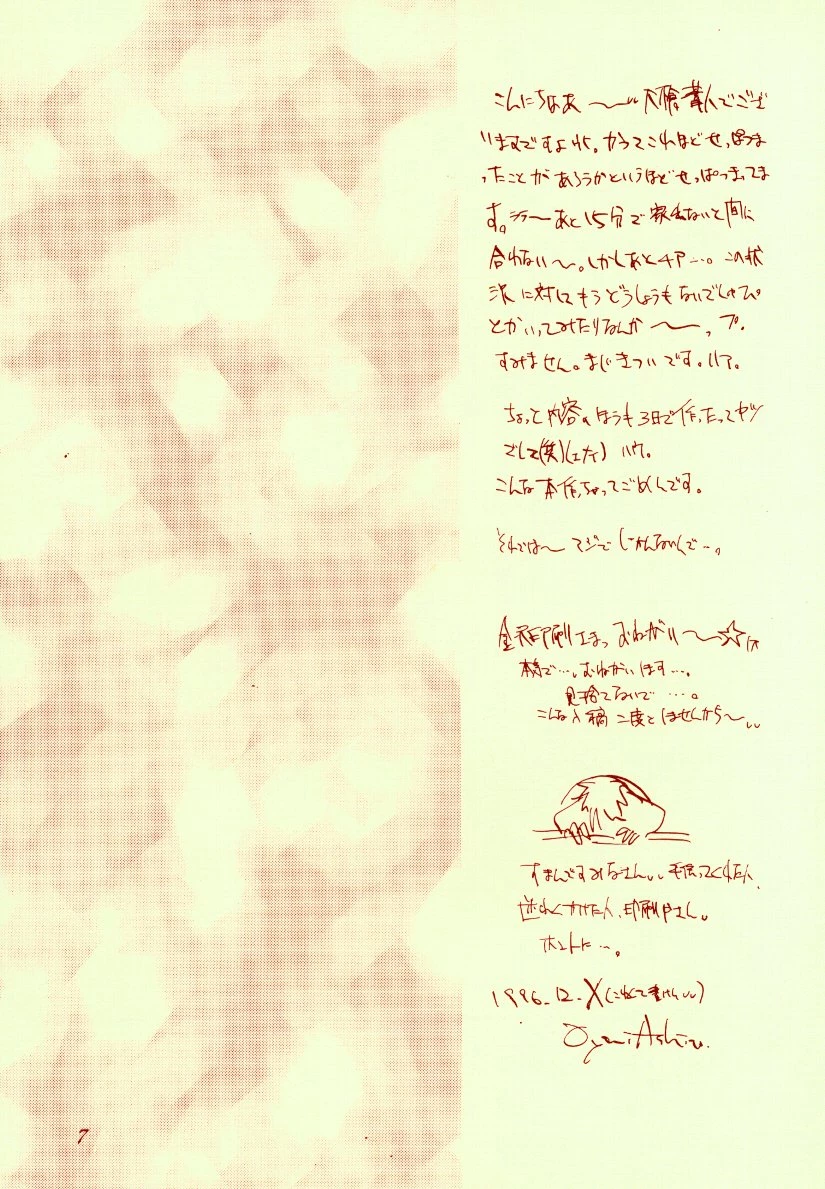 こんにちなあ〜〜 大槍葦人でござ
いますですよ〜。かつてこれほどせっぱつま
ったことがあろうかというほどせっぱつまってま
す。 〜あと15分で 家出ないと間に
合わない〜。しかしあと4P…。この状
況に対してもうどうしようもないでしゅぴ
とかいってみたりなんか〜〜、プ。
すみません。まじきついです。ハア。
ちょっと内容のほうも3日で作ったってヤツ
でして(笑) ハウ。
こんな本作っちゃってごめんです。
それでは〜 マジで じかんないんで…。
金沢印刷さまっ おねがい〜〜☆
本当で…。おねがいします…。
見捨てないで…。
こんな入稿二度としませんから〜
すまんですみなさん 手伝ってくれた人、
迷わくかけた人、印刷やさん。
ホントに…。
1996.12.X(こわくて書けん)
Oyari Ashito.
7